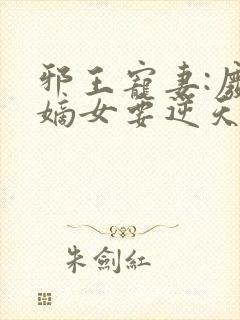 邪王寵妻:廢
嫡女要逆天
朱劍紅